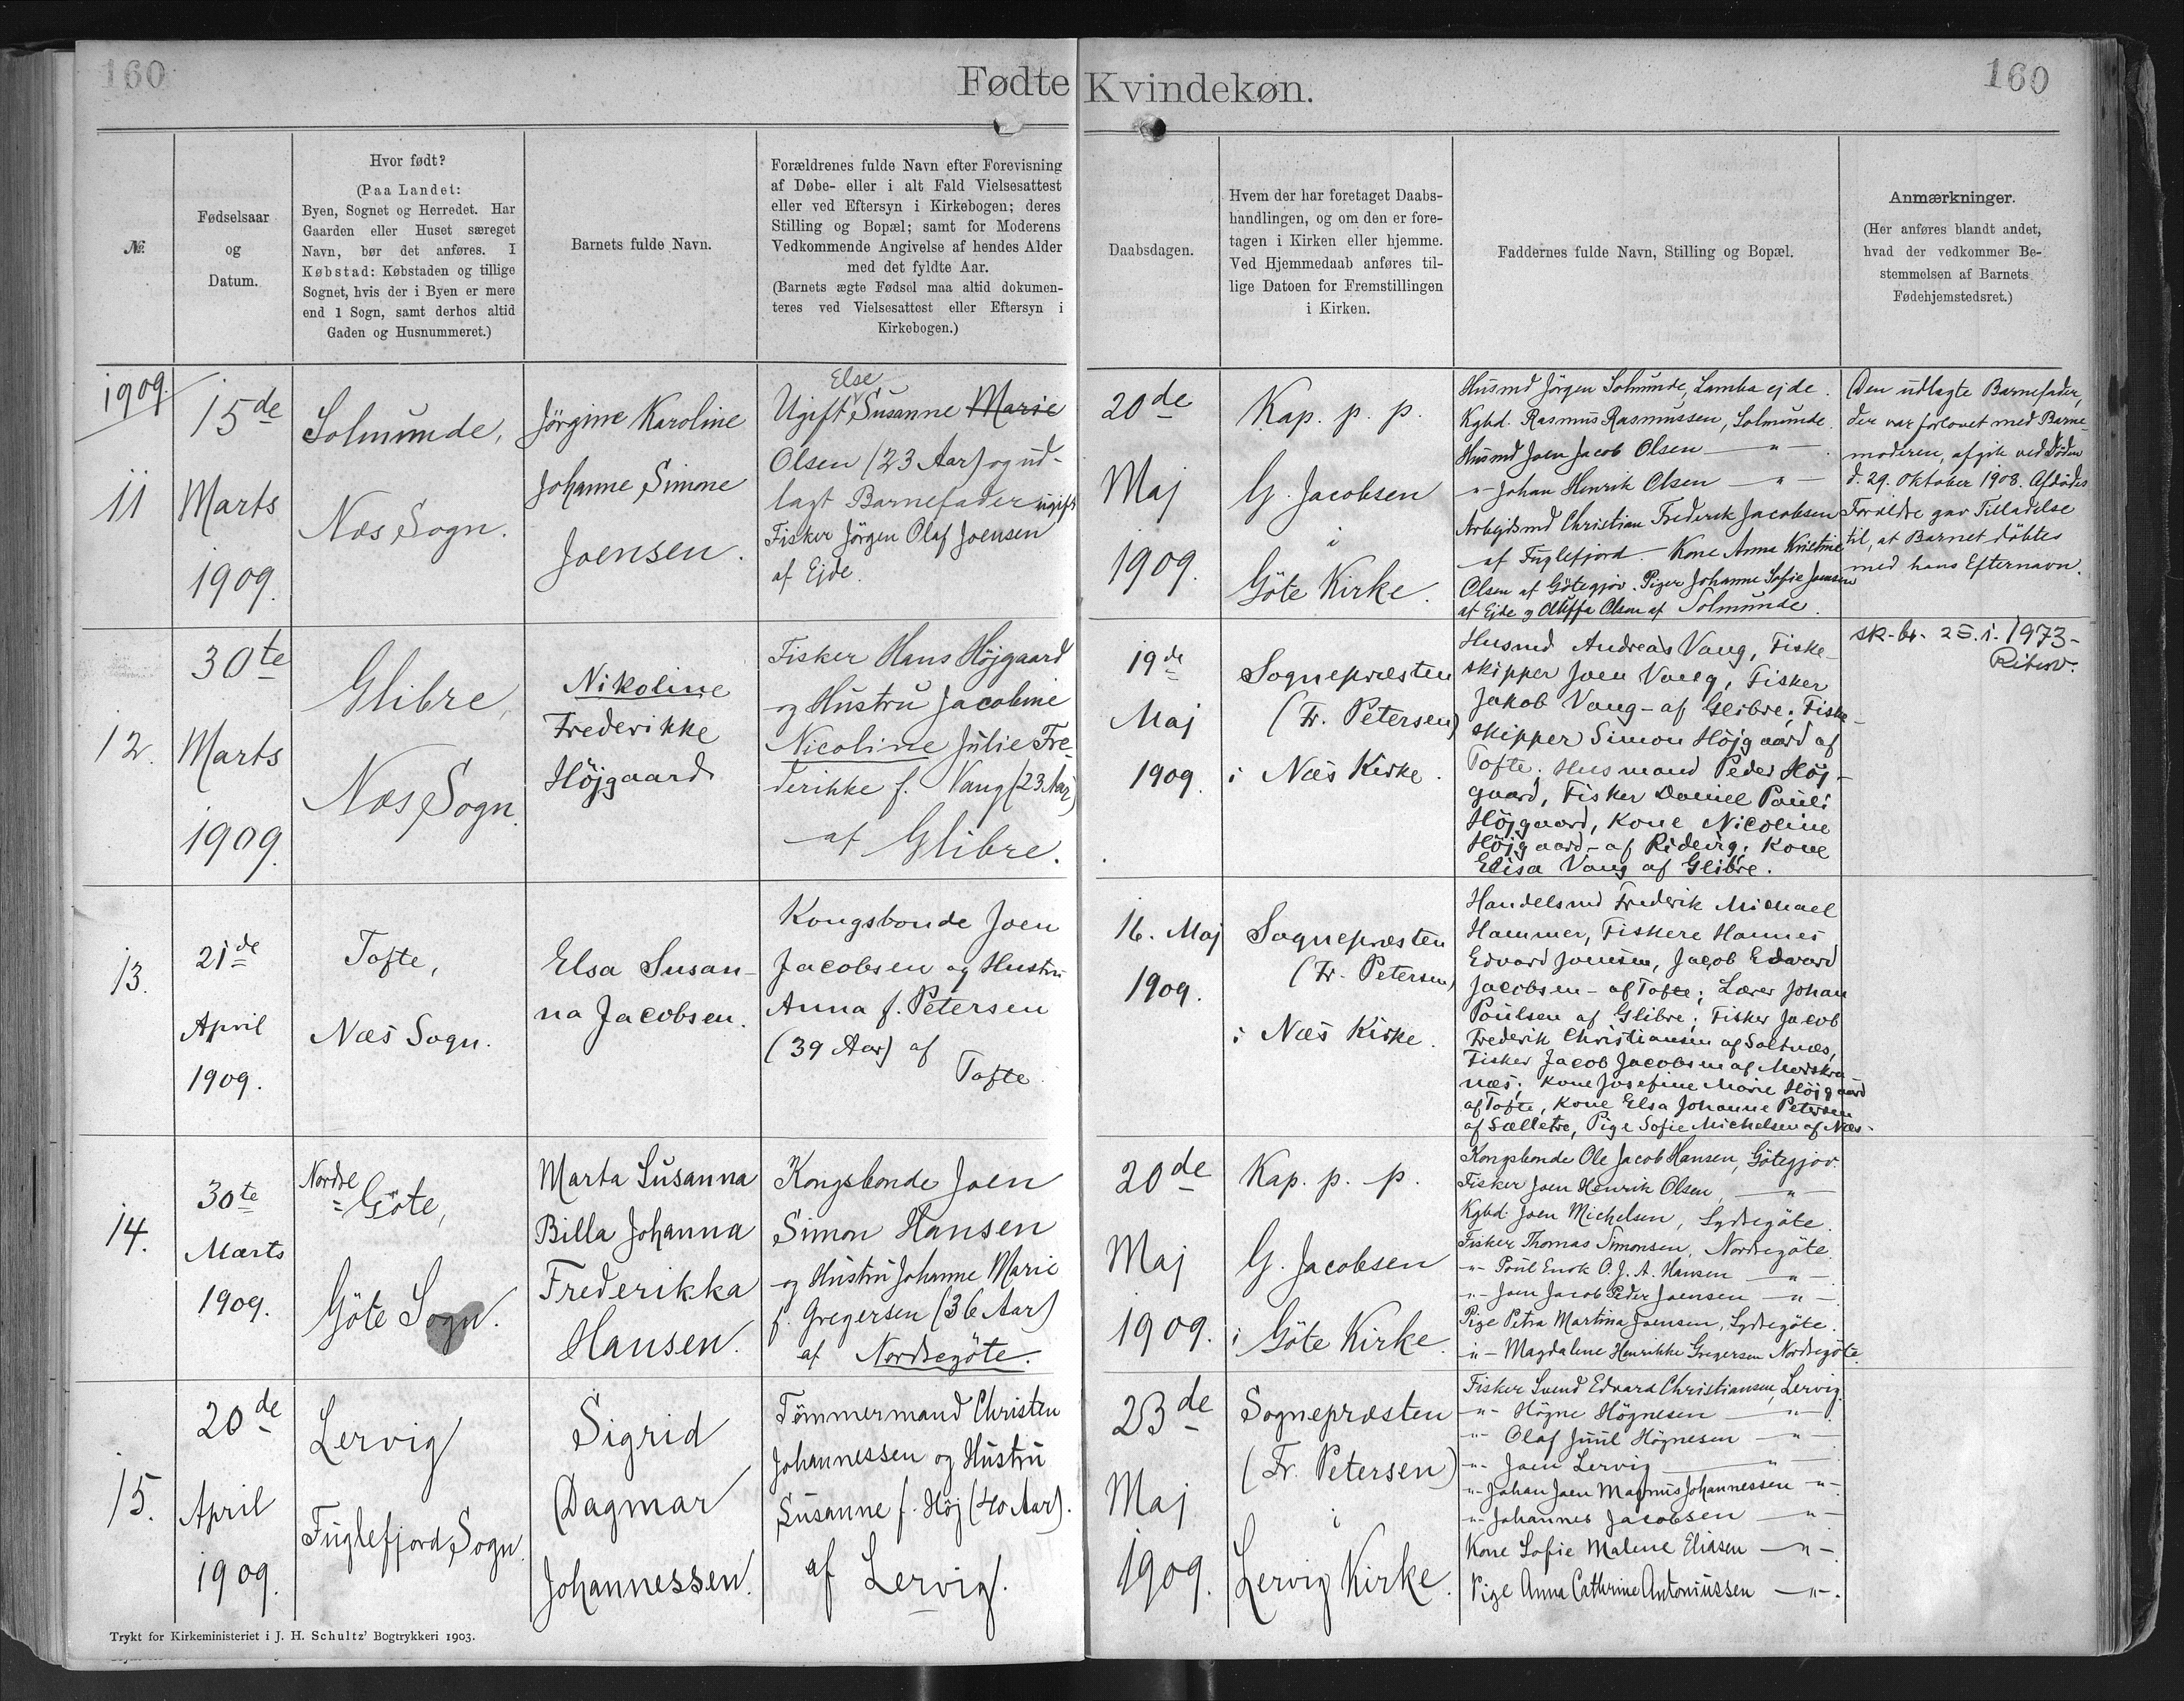 160
Fødte Kvindekøn.
160
№.
Fødselsaar
og
Datum.
Hvor født?
(Paa Landet:
Byen, Sognet og Herredet. Har
Gaarden eller Huset særeget
Navn, bør det anføres. I
Købstad: Købstaden og tillige
Sognet, hvis der i Byen er mere
end 1 Sogn, samt derhos altid
Gaden og Husnummeret.)
Barnets fulde Navn.
Forældrenes fulde Navn efter Forevisning
af Døbe- eller i alt Fald Vielsesattest
eller ved Eftersyn i Kirkebogen; deres
Stilling og Bopæl; samt for Moderens
Vedkommende Angivelse af hendes Alder
med det fyldte Aar.
(Barnets ægte Fødsel maa altid dokumen-
teres ved Vielsesattest eller Eftersyn i
Kirkebogen.)
Daabsdagen.
Hvem der har foretaget Daabs-
handlingen, og om den er fore-
tagen i Kirken eller hjemme.
Ved Hjemmedaab anføres til-
lige Datoen for Fremstillingen
i Kirken.
Faddernes fulde Navn, Stilling og Bopæl.
Anmærkninger.
(Her anføres blandt andet,
hvad der vedkommer Be-
stemmelsen af Barnets
Fødehjemstedsret.)
1909.
11
15de
Marts
1909.
Solmunde,
Næs Sogn.
Jörgine Karoline
Johanne Simone
Joensen.
Else
Ugift Susanne Marie
Olsen (23 Aar) og ud-
lagt Barnefader ugift
Fisker Jörgen Olaf Joensen
af Ejde.
20de
Maj
1909.
Kap. p. p.
G. Jacobsen
i
Göte Kirke.
Husmd Jörgen Solmunde, Lamba ejde.
Kgbd. Rasmus Rasmussen, Solmunde.
Husmd Joen Jacob Olsen —"—.
"- Johan Henrik Olsen —"—
Arbejdsmd Christian Frederik Jacobsen
af Fuglefjord - Kone Anna Kristine
Olsen af Götegjov. Piger Johanne Sofie Joensen
af Ejde og Oluffa Olsen af Solmunde.
Den udlagte Barnefader,
der var forlovet med Barne-
moderen, afgik ved Döden
d. 29. Oktober 1908. Afdödes
Forældre gav Tilladelse
til, at Barnet döbtes
med hans Efternavn.
12.
30te
Marts
1909.
Glibre,
Næs Sogn.
Nikoline
Frederikke
Höjgaard
Fisker Hans Höjgaard
og Hustru Jacobine
Nicoline Julie Fre-
derikke f. Vang (23 Aar)
af Glibre.
19de
Maj
1909.
Sognepræsten
(Fr. Petersen)
i Næs Kirke.
Husmd Andreas Vang, Fiske-
skipper Joen Vang, Fisker
Jakob Vang - af Glibre; Fiske-
skipper Simon Höjgaard af
Tofte; Husmand Peder Höj-
gaard, Fisker Daniel Pouli
Höjgaard, Kone Nicoline
Höjgaard - af Ridevig; Kone
Elisa Vang af Glibre.
sk. br. 25.1.1973-
13.
21de
April
1909.
Tofte,
Næs Sogn.
Elsa Susan-
na Jacobsen.
Kongsbonde Joen
Jacobsen og Hustru
Anna f. Petersen
(39 Aar) af
Tofte.
16. Maj
1909.
Sognepræsten
(Fr. Petersen)
i Næs Kirke.
Handelsmd Frederik Michael
Hammer, Fiskere Hannes
Edvard Joensen, Jacob Edvard
Jacobsen - af Tofte; Lærer Johan
Poulsen af Glibre; Fisker Jacob
Frederik Christiansen af Saltnæs,
Fisker Jacob Jacobsen af Morskra-
næs; Kone Josefine Marie Höjgaard
af Tofte, Kone Elsa Johanne Petersen
af Sælletre, Pige Sofie Michelsen af Næs.
14.
30te
Marts
1909.
Nordre
=Göte,
Göte Sogn.
Marta Susanna
Billa Johanna
Frederikka
Hansen.
Kongsbonde Joen
Simon Hansen
og Hustru Johanne Marie
f. Gregersen (36 Aar)
af Nordregöte.
20de
Maj
1909.
Kap. p. p.
G. Jacobsen
i Göte Kirke.
Kongsbonde Ole Jacob Hansen, Götegjov.
Fisker Joen Henrik Olsen, —"—
Kgbd. Joen Michelsen, Sydregöte.
Fisker Thomas Simonsen, Nordregöte.
"- Poul Enok O. J. A. Hansen —"—.
"- Joen Jacob Peder Joensen —"—.
Pige Petra Martina Joensen, Sydregöte.
"- Magdalene Henrikke Gregersen Nordregöte.
15.
20de
April
1909.
Lervig
Fuglefjord Sogn.
Sigrid
Dagmar
Johannessen.
Tömmermand Christen
Johannessen og Hustru
Susanne f. Höj (40 Aar).
af Lervig.
23de
Maj
1909.
Sognepræsten
(Fr. Petersen)
i
Lervig Kirke.
Fisker Svend Edvard Christiansen, Lervig.
"- Högne Högnesen —"—.
"- Olaf Juul Högnesen —"—
"- Joen Lervig —"—
"- Johan Joen Magnus Johannessen "-
"- Johannes Jacobsen —"—
Kone Sofie Malene Eliasen —"—.
Pige Anna Cathrine Antoniussen —"—.
Trykt for Kirkeministeriet i J. H. Schultz' Bogtrykkeri 1903.